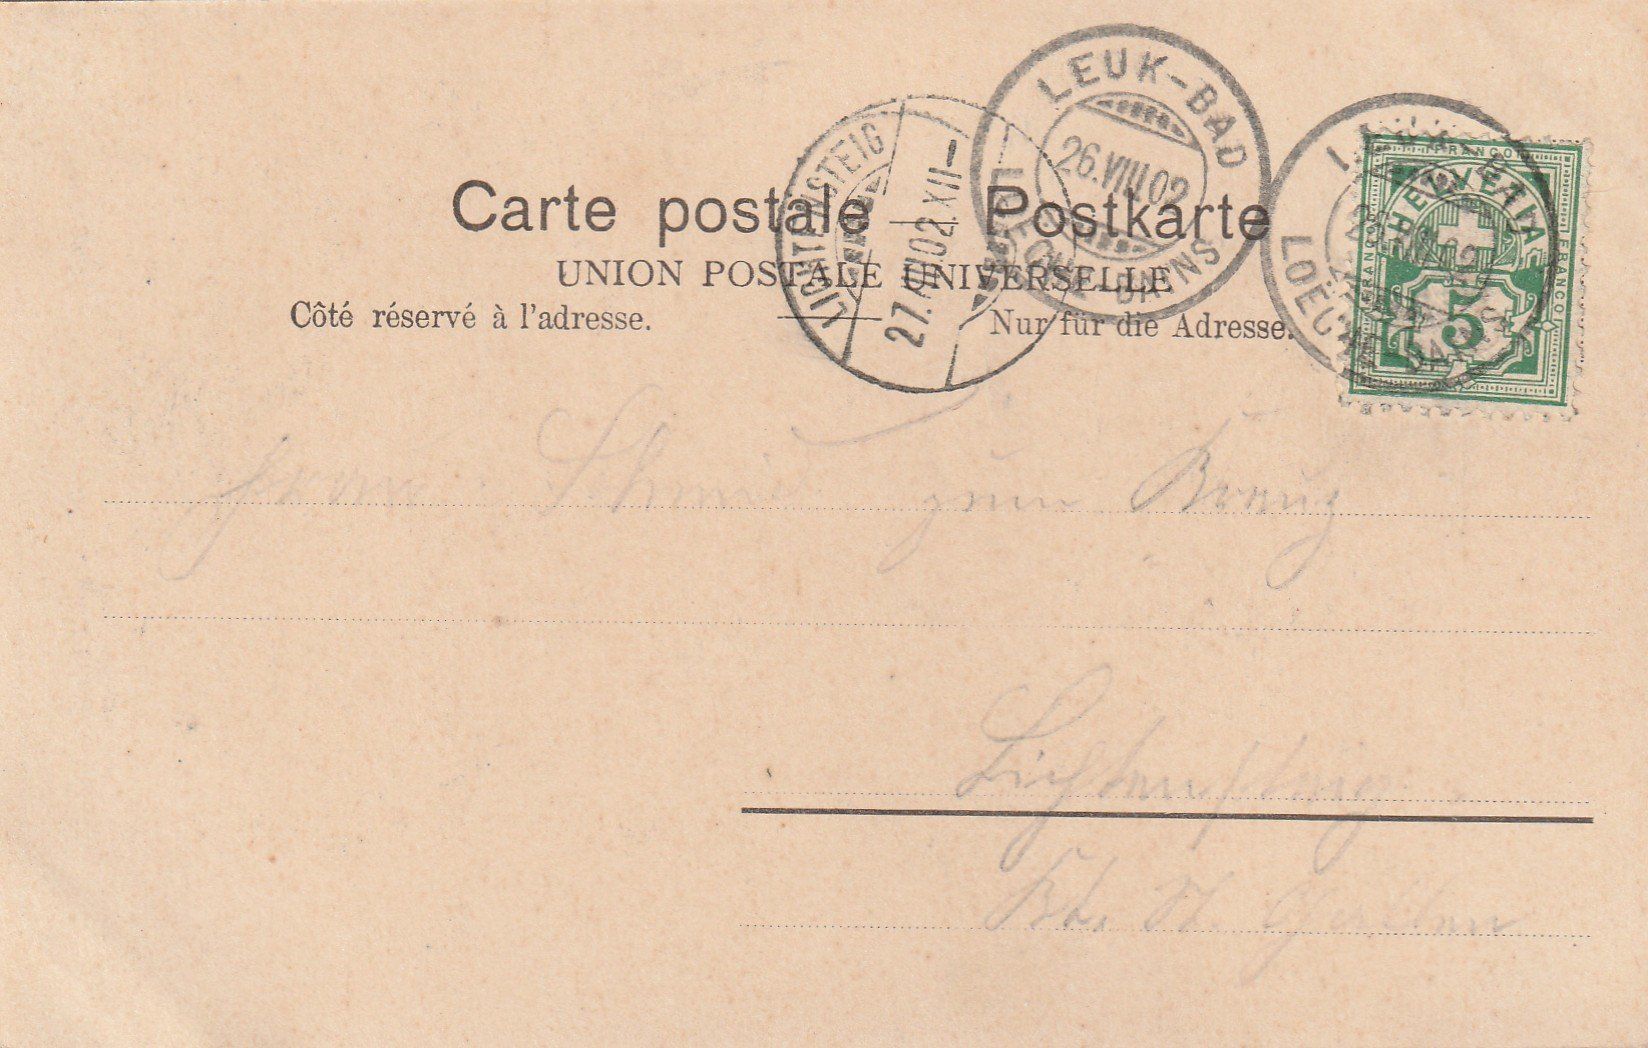 Carte postale — Postkarte
UNION POSTALE UNIVERSELLE
Côté réservé à l'adresse.
Nur für die Adresse.
LEUK-BAD
26.VIII.02
LOECHE-BAINS
LICHTENSTEIG
27.VIII.02.XII—
LOECHE BAINS
FRANCO
FRANCO
FRANCO
HELVETIA
5
Herrn Schmid zum Kreuz
Lichtensteig.
Kt. St. Gallen